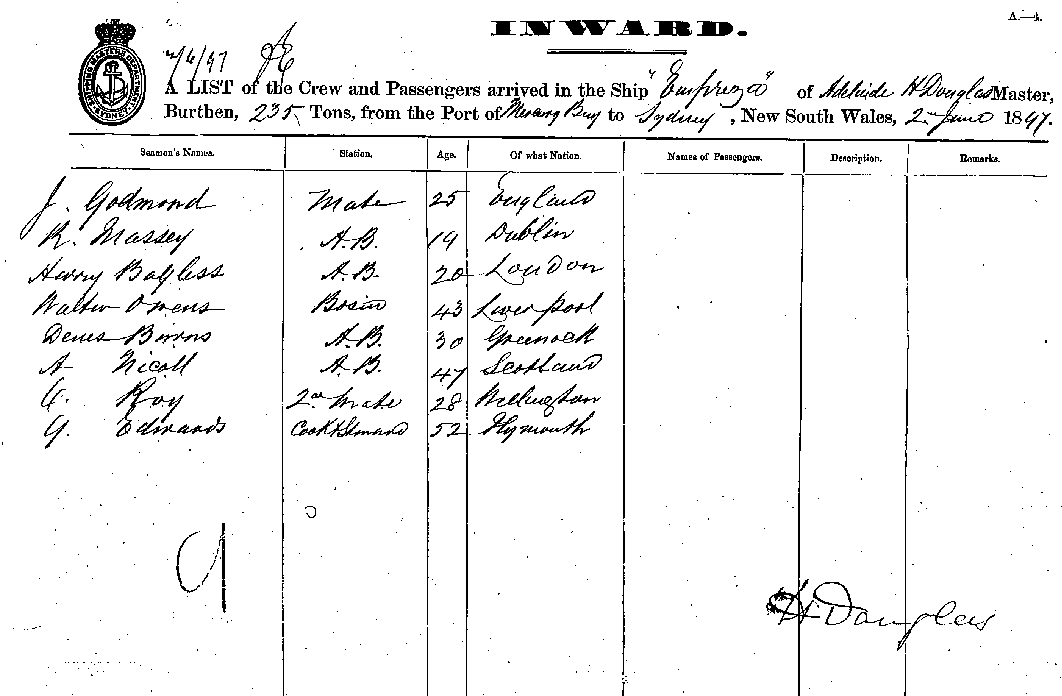 INWARD.
A.—4.
2/6/97
A LIST of the Crew and Passengers arrived in the Ship "Empreza" of Adelaide H Douglas Master,
Burthen, 235 Tons, from the Port of Bay to Sydney, New South Wales, 2nd June 1897.
Seamen's Names. Station. Age. Of what Nation. Names of Passengers. Description. Remarks.
J. Godmond Mate 25 England
R. Massey A.B. 19 Dublin
Harry Bayless A.B. 20 London
Walter Owens Bosun 43 Liverpool
Denis Binns A.B. 30 Greenock
A Nicoll A.B. 47 Scotland
Roy 2nd Mate 28 Wellington
G. Edwards Cook & Steward 52 Plymouth
9
H Douglas